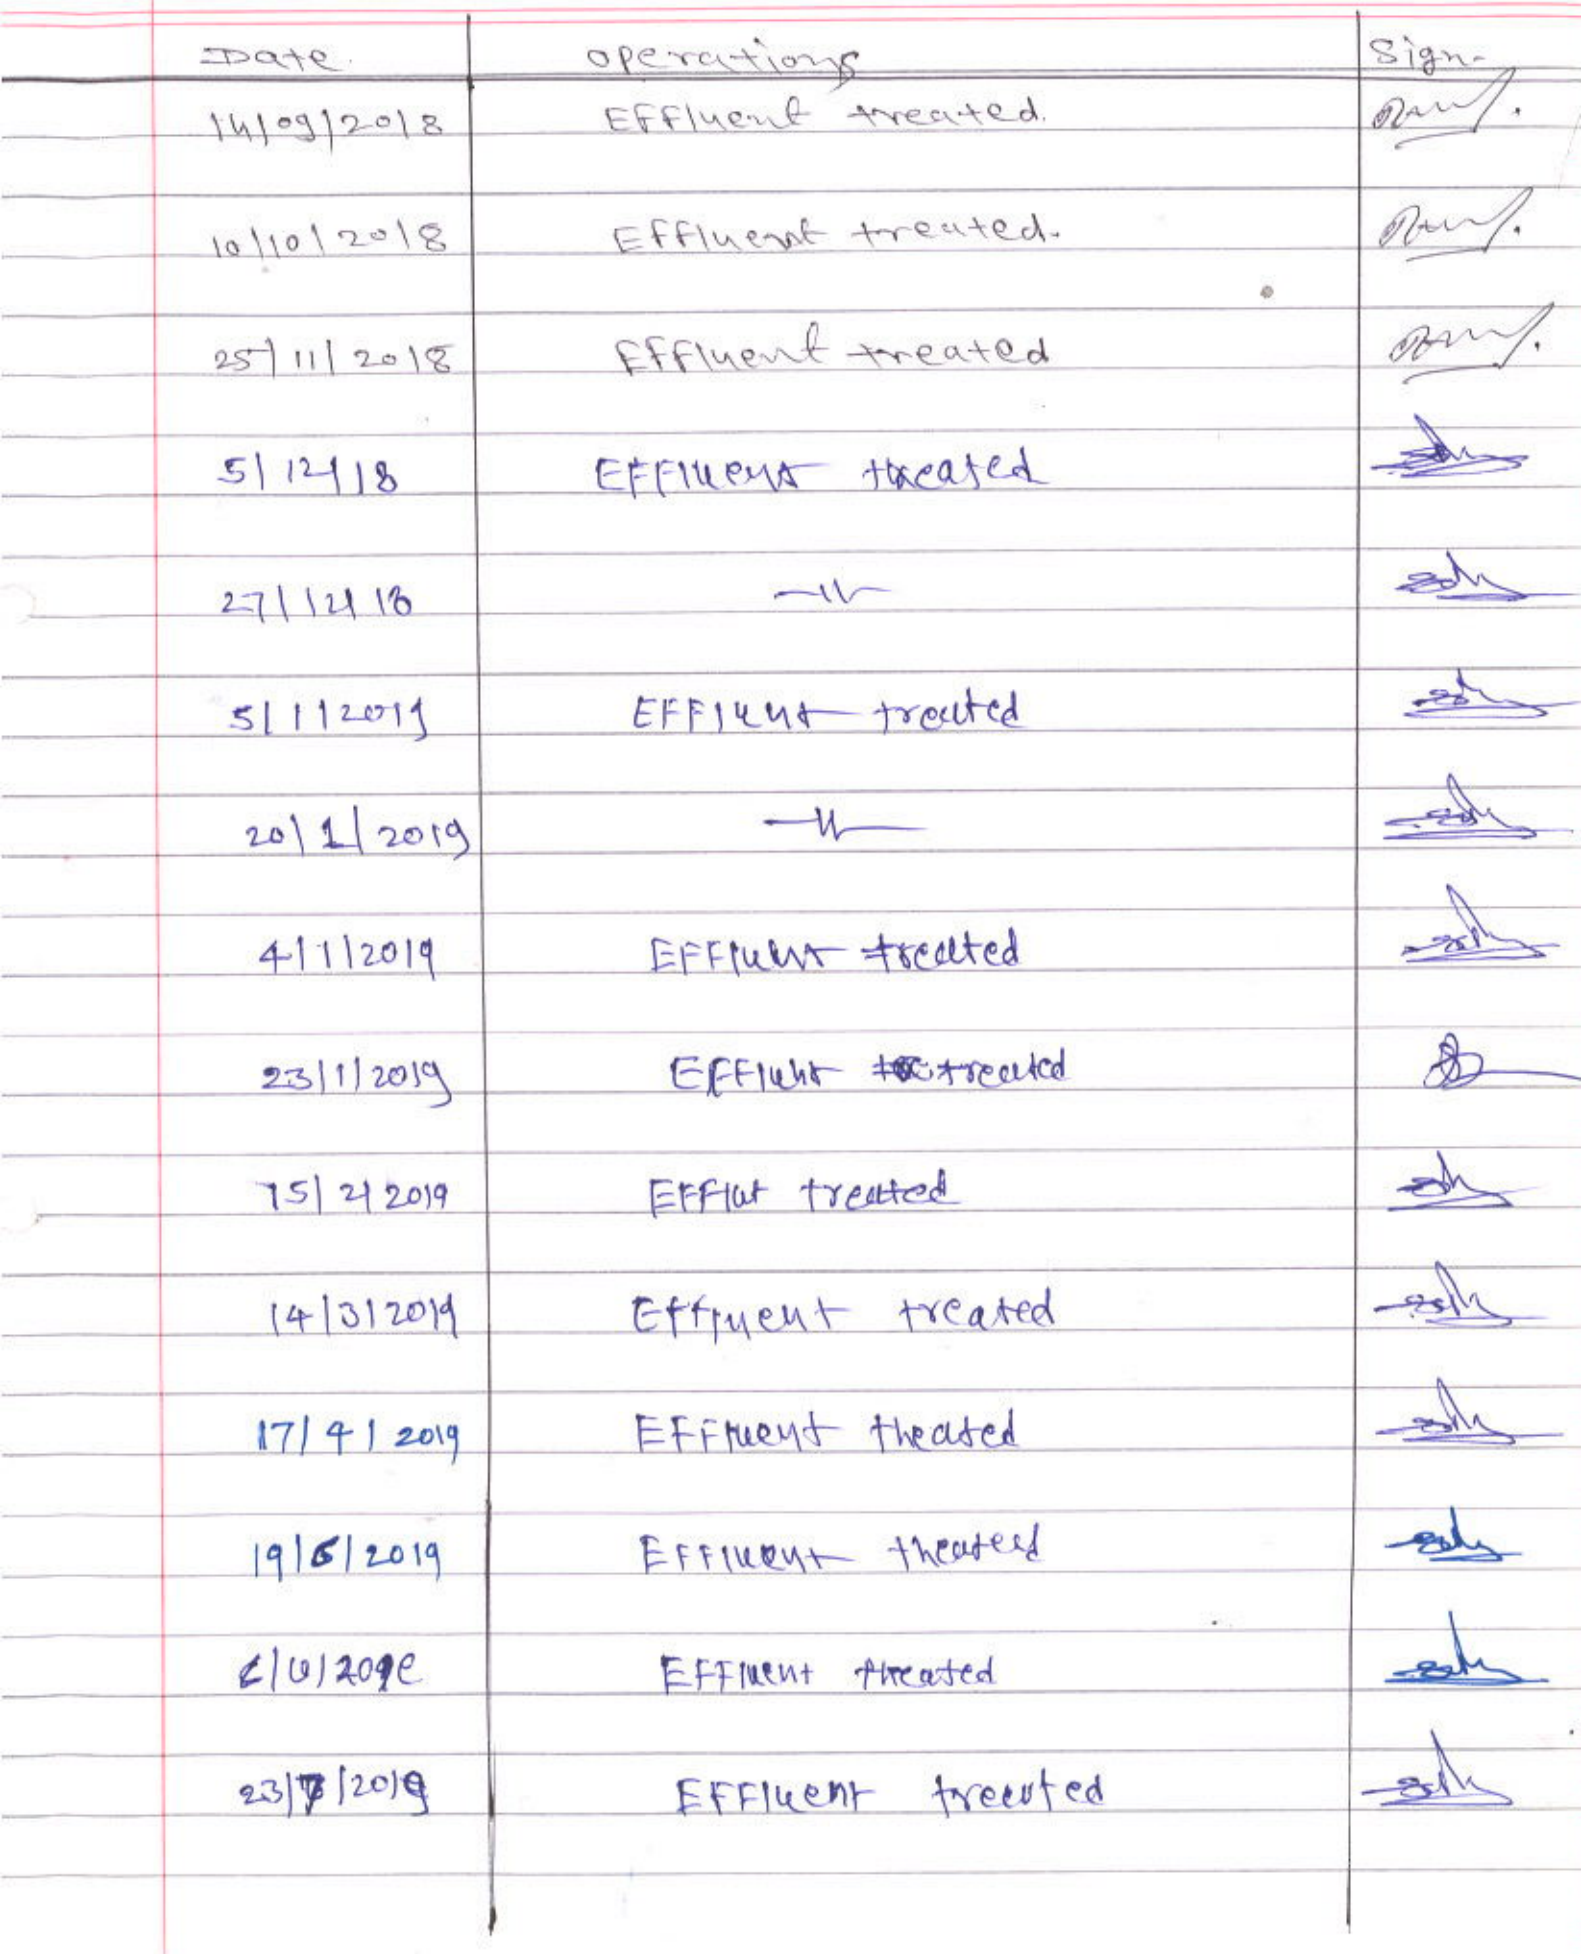 Date. Operations Sign.
14/09/2018 Effluent treated.
10/10/2018 Effluent treated.
25/11/2018 Effluent treated
5/12/18 Effluent treated
27/12/18 —〃—
5/1/2019 Effluent treated
20/1/2019 —〃—
4/1/2019 Effluent treated
23/1/2019 Effluht treated
15/2/2019 Efflut treated
14/3/2019 Effluent treated
17/4/2019 Effluent theated
19/6/2019 Effluent theated
Effluent theated
23/7/2019 Effluent treeated